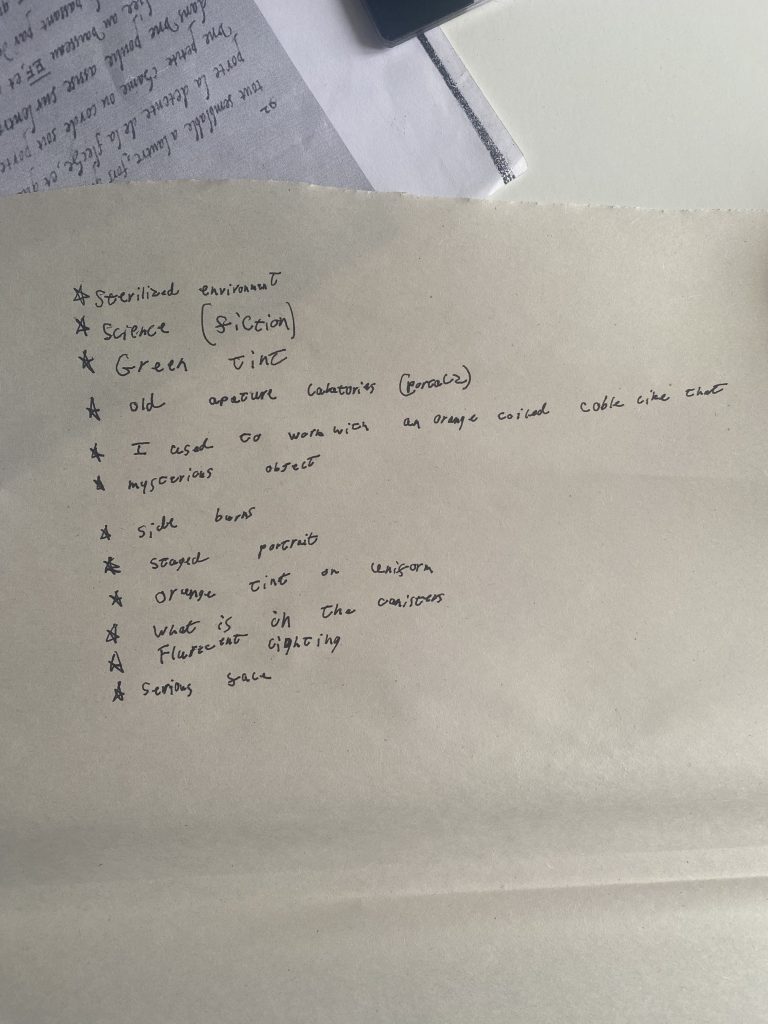 92
tout semblable a lautre, fors
porte la detente de la fleche, et
une petite chaine ou corde soit
dans une poulie assise sur
au vaisseau EF, et
passant par
☆ Sterilized environment
☆ Science (fiction)
☆ Green tint
☆ old apature labatories (portal 2)
☆ I used to work with an orange coiled cable like that
☆ mysterious object
☆ side burns
☆ staged portrait
☆ orange tint on uniform
☆ what is in the canisters
☆ Flurecent lighting
☆ Serious face